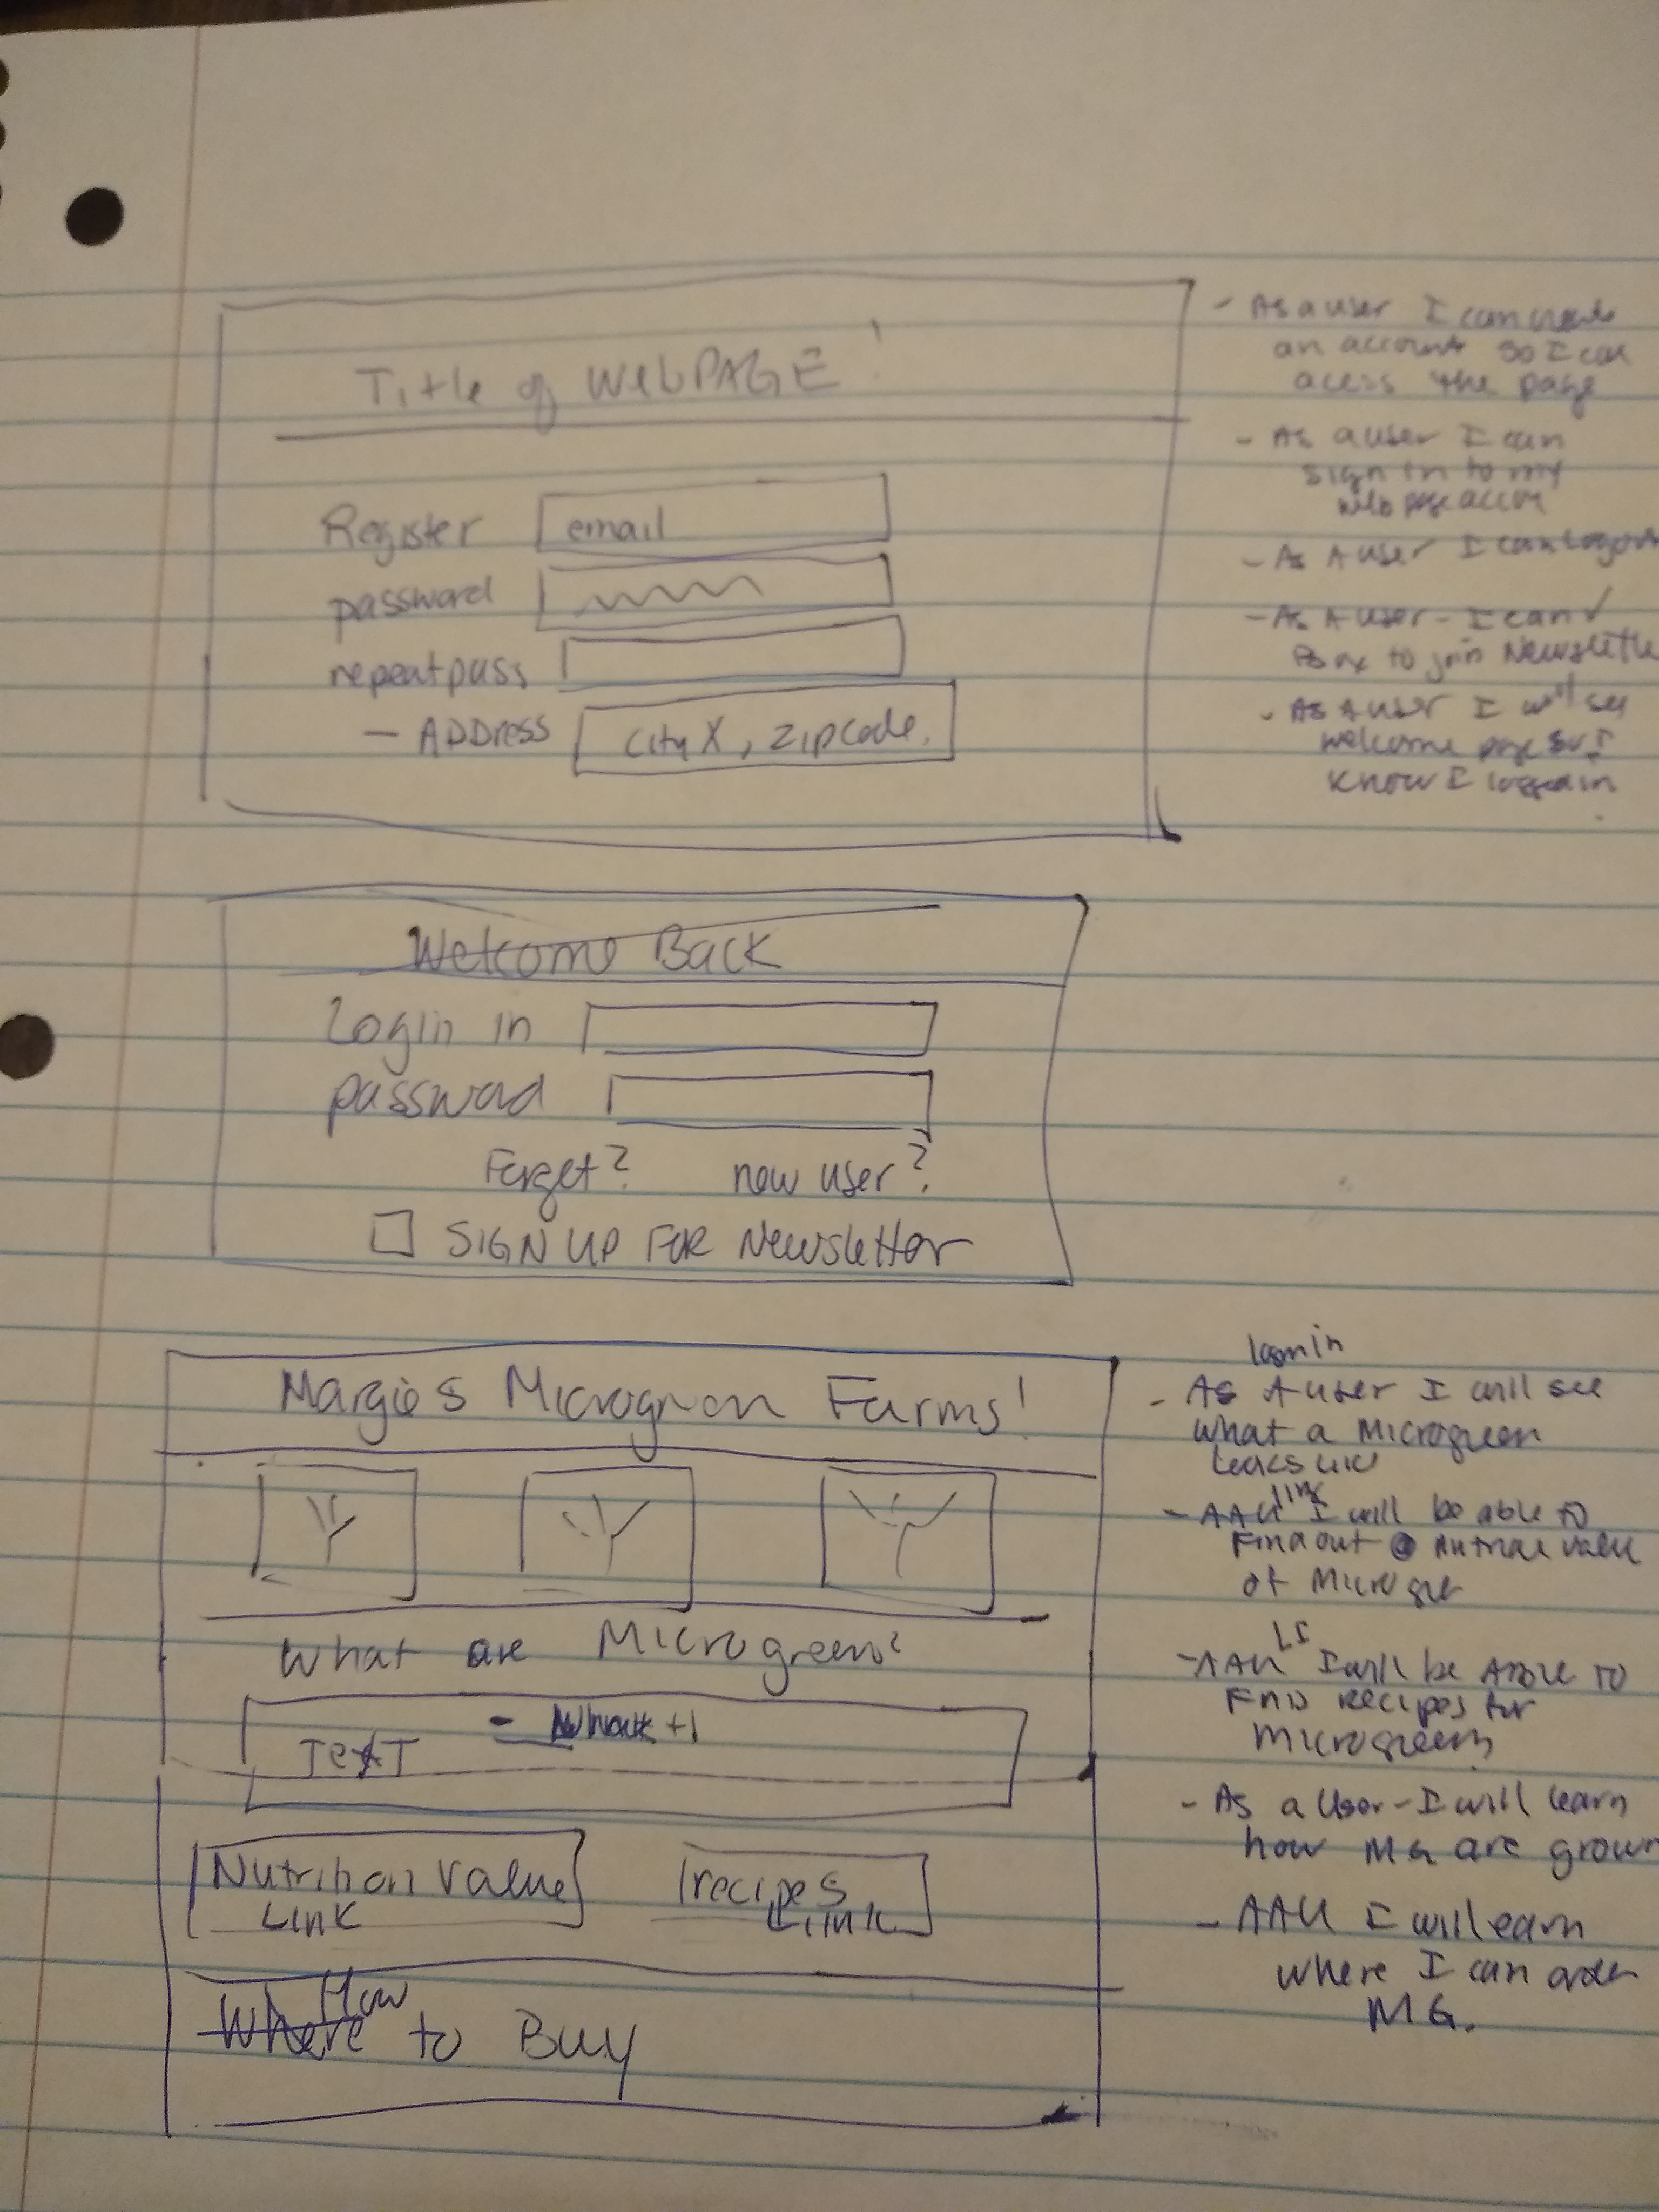 Title of WebPAGE!
Register email
password
repeatpass
- ADDress cityX, zipcode.
- As a user I can create
an account so I can
acess the page
- As a user I can
sign in to my
web page accou
- As A user I can Logout
- As A user - I can ✓
Box to join Newslette
- As A user I will see
welcome page so I
know I logged in
Welcome Back
Login in
password
Forget? new user?
SIGN UP FOR Newsletter
Margie's Microgreen Farms!
What are Microgreens?
Text -
Nutrition Value recipes
Link Link
How
Where to Buy
login
- As A user I will see
what a Microgreen
looks like
link
- AAU I will be able to
Find out value
of Microgre
LI
- AAU I will be Able to
Find Recipes for
Microgreens
- As a User - I will learn
how MG are grown
- AAU I will learn
where I can order
MG.